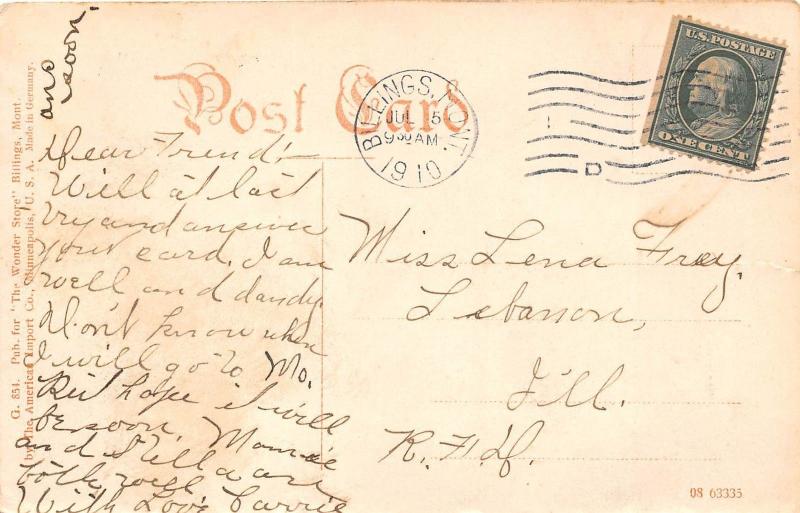 Post Card
BILLINGS, MONT.
JUL 5
9 30 AM
1910
D
U.S. POSTAGE
ONE CENT
G. 854. Pub. for "The Wonder Store" Billings, Mont.
by The American Import Co., Minneapolis, U. S. A. Made in Germany.
Dear Friend:-
Will at last
try and answer
your card. I am
well and dandy.
Don't know when
I will go to Mo.
But hope it will
be soon. Mamie
and Stella are
both well
With Love Carrie
ans
soon
Miss Lena Frey.
Lebanon,
Ill.
R. F. D.
08 63335